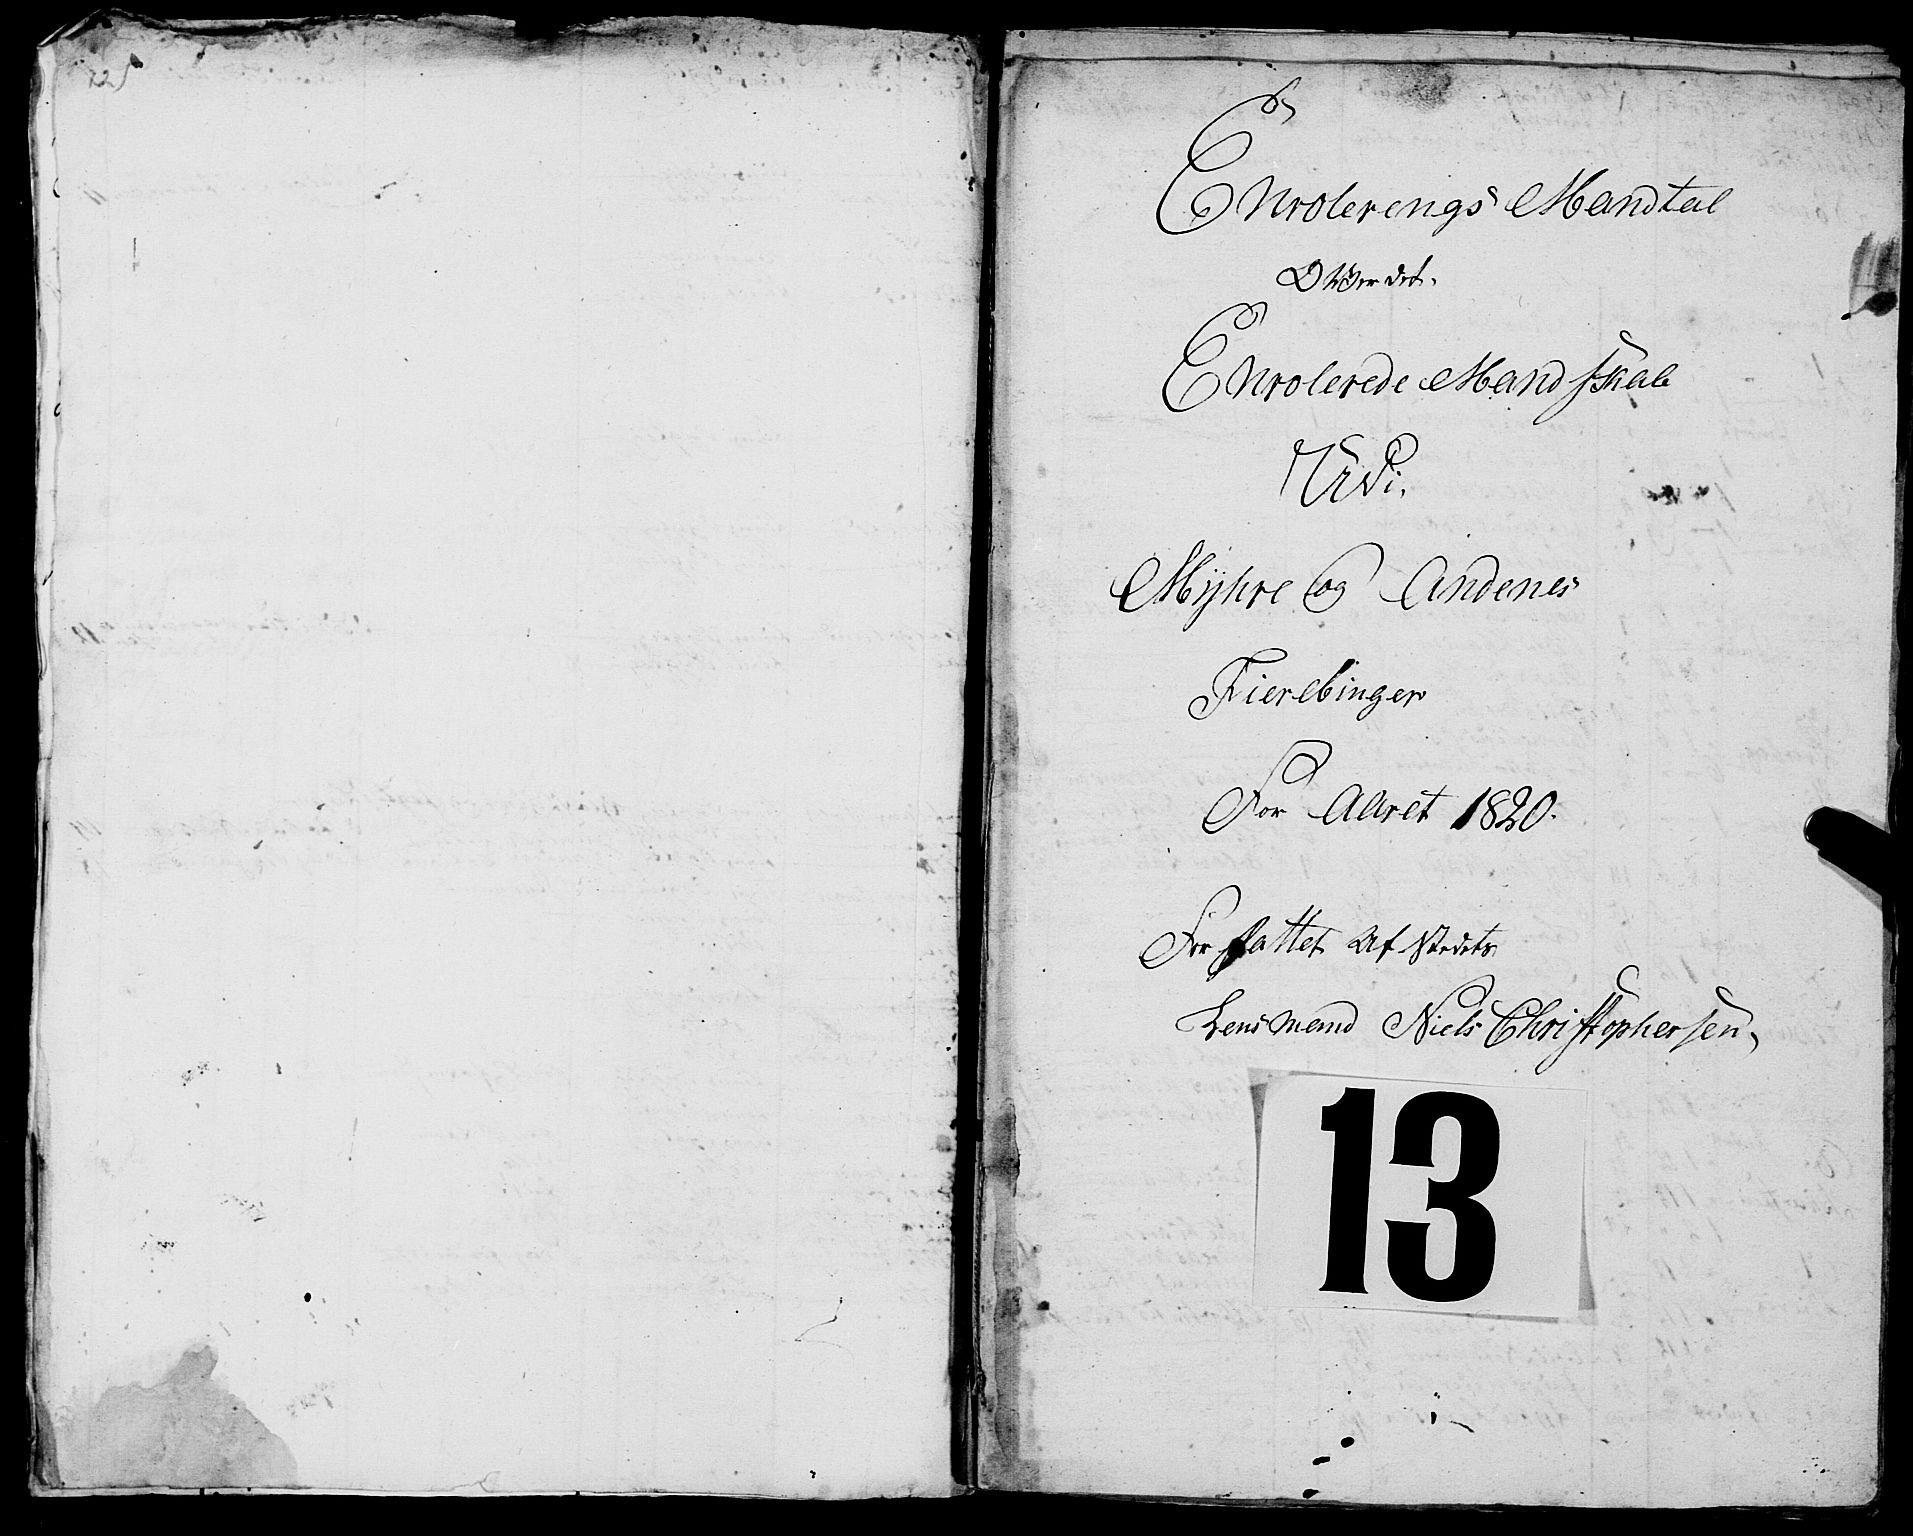 Enrolerings Mandtal
Over det
Enrolerede Mandskab
Udi
Mÿhre og Andenes
Fierdinger
For Aaret 1820.
Forfattet af Stedets
Lensmand Niels Christophersen,
13